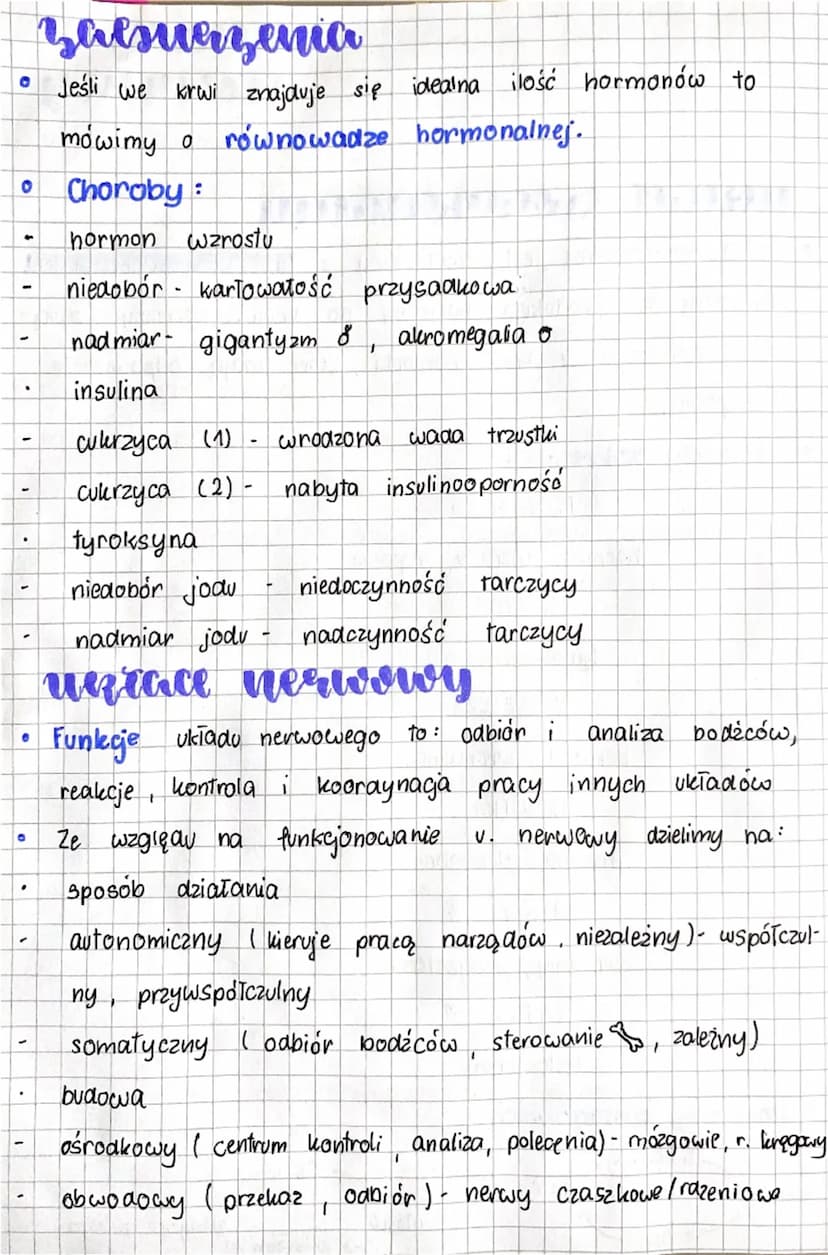 zaburzenia
• Jeśli we krwi znajduje się idealna ilość hormonów to
mówimy o równowadze hormonalnej.
• Choroby:
- hormon wzrostu
- niedobór - karłowatość przysadkowa
- nadmiar - gigantyzm, akromegalia
· insulina
- cukrzyca (1) - wrodzona wada trzustki
- cukrzyca (2) - nabyta insulinooporność
· tyroksyna
- niedobór jodu - niedoczynność tarczycy
- nadmiar jodu - nadczynność tarczycy
nerwowy
• Funkcje układu nerwowego to: odbiór i analiza bodźców,
reakcje, kontrola i koordynacja pracy innych układów
• Ze względu na funkcjonowanie u. nerwowy dzielimy na:
· sposób działania
- autonomiczny (kieruje pracą narządów, niezależny) - współczul-
ny, przywspółczulny
- somatyczny (odbiór bodźców, sterowanie, zależny)
· budowa
- ośrodkowy (centrum kontroli, analiza, polecenia) - mózgowie, r. kręgowy
- obwodowy (przekaz, odbiór) - nerwy czaszkowe/rdzeniowe